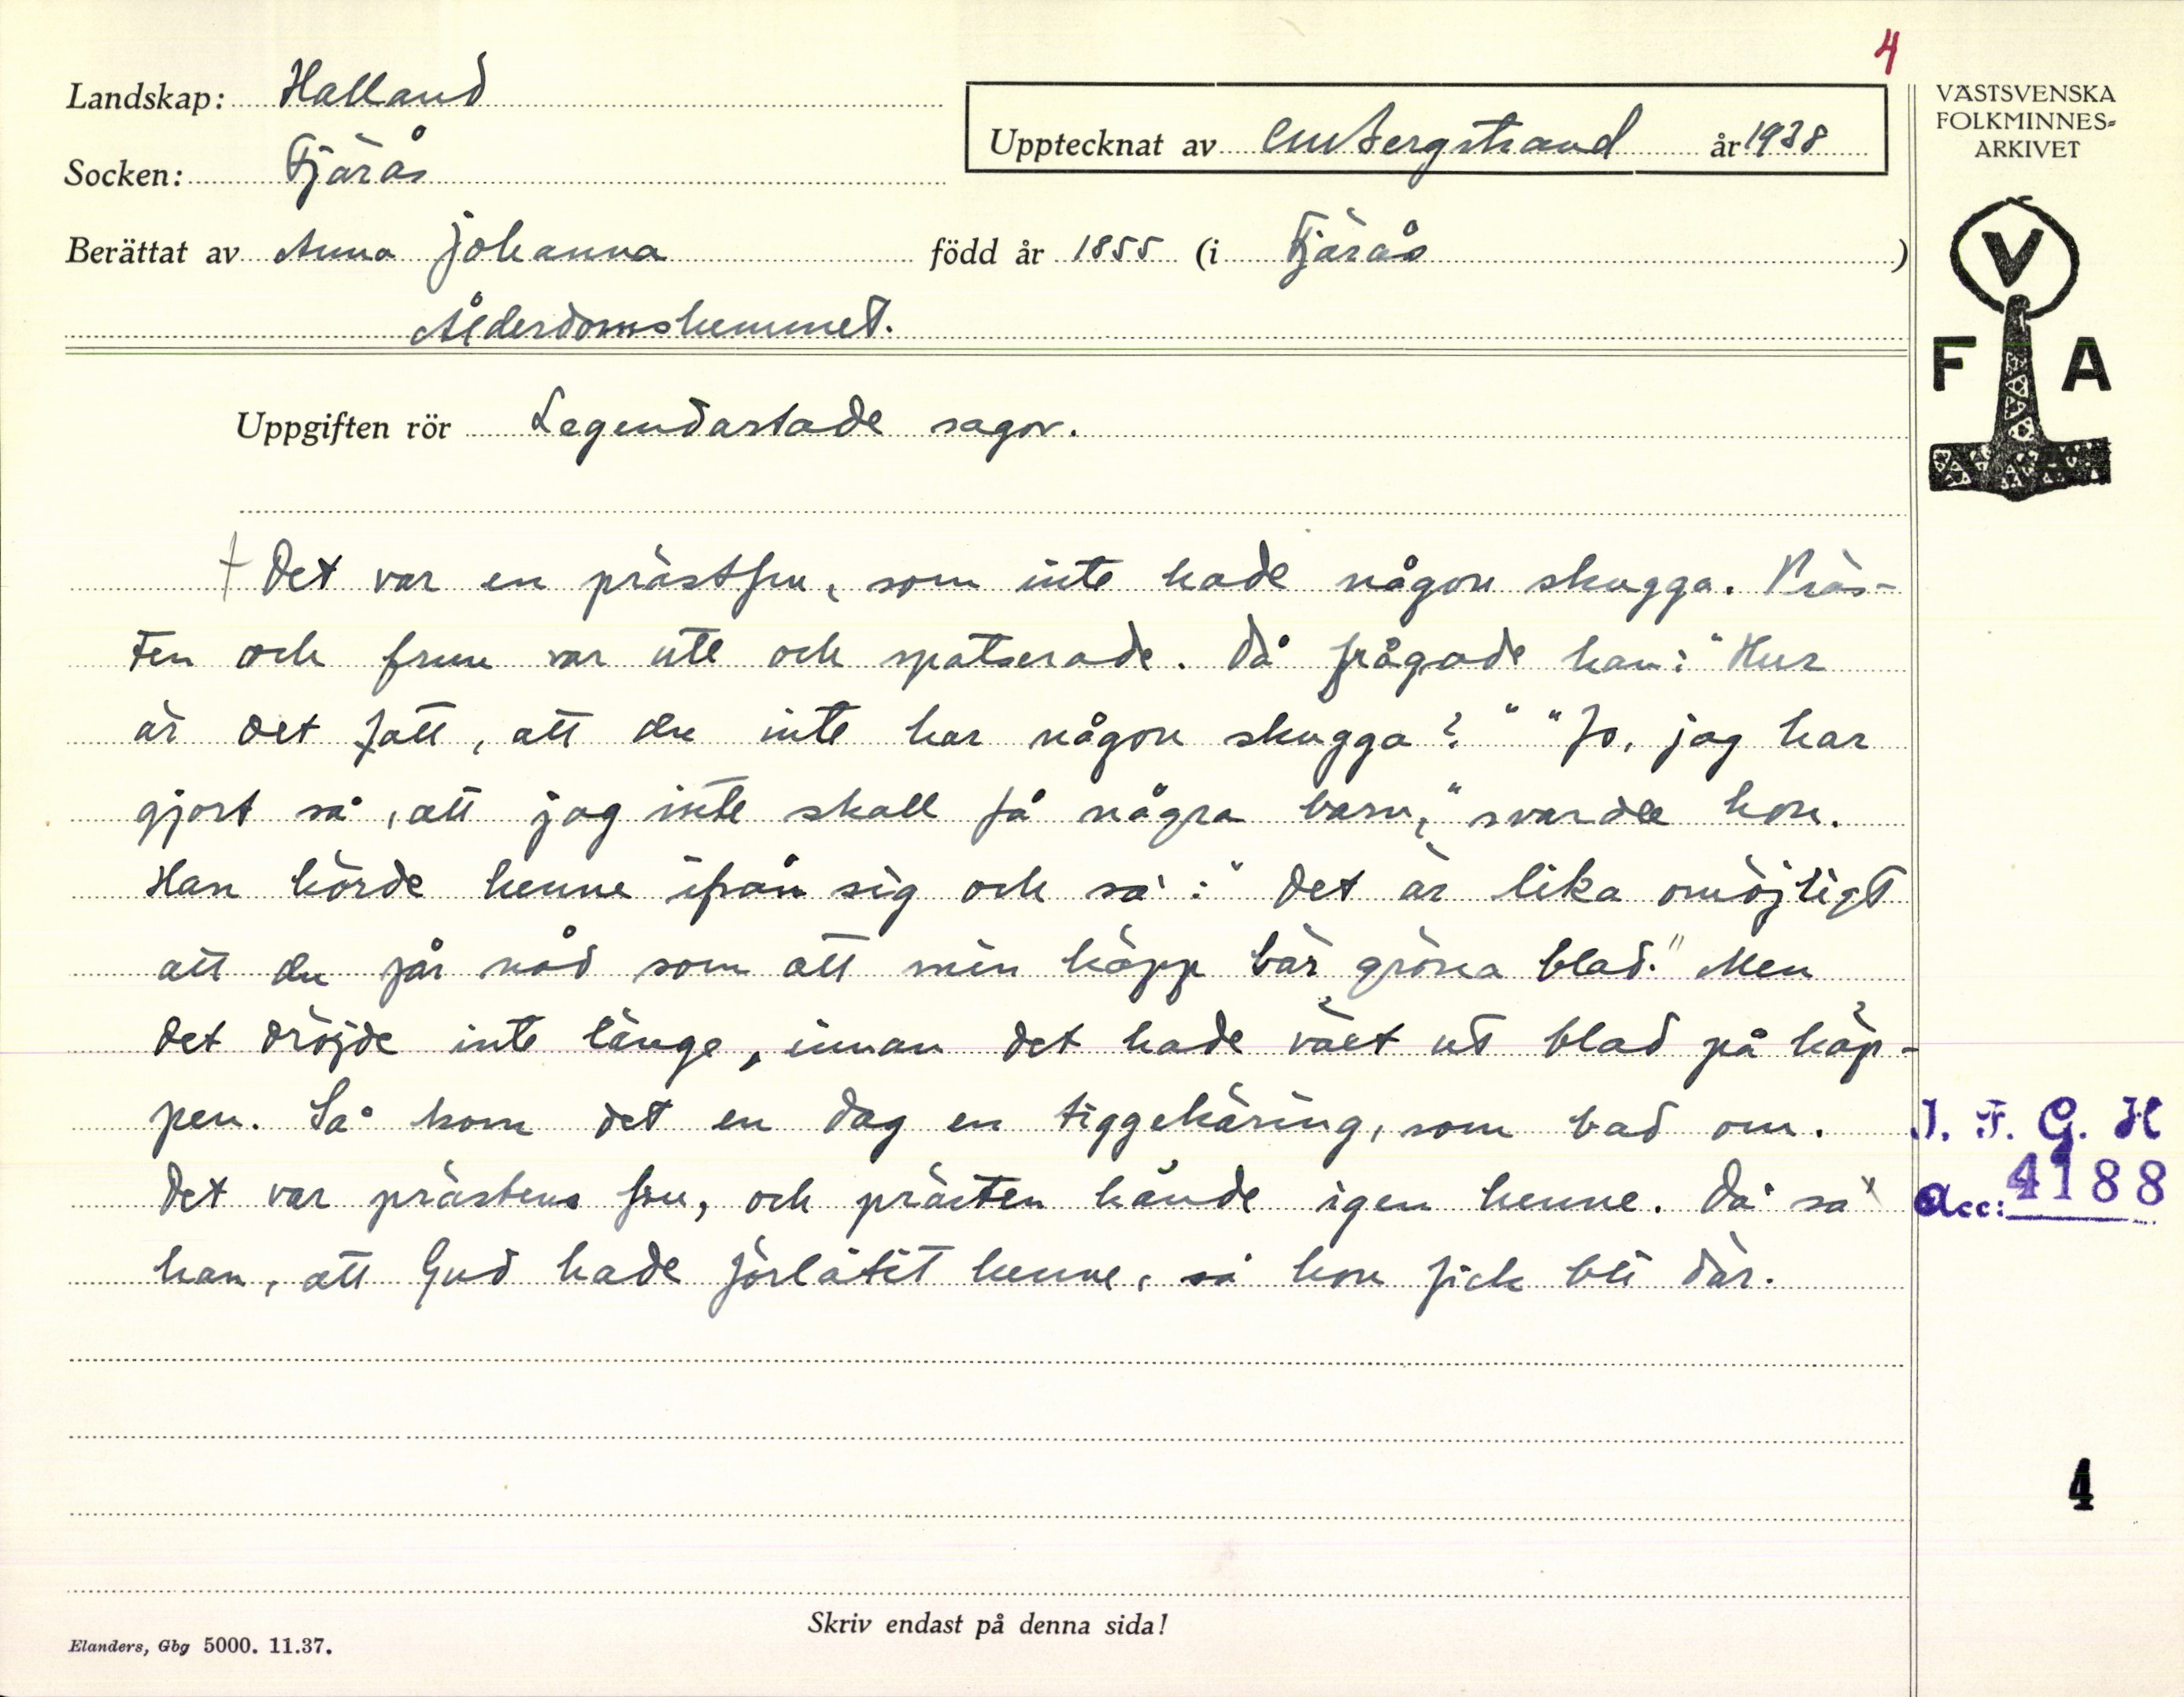 4
Landskap: Halland
Socken: Fjärås
Upptecknat av CMBergstrand år 1938
Berättat av Anna Johanna född år 1855 (i Fjärås)
Ålderdomshemmet.
Uppgiften rör Legendartade sagor.
Det var en prästfru, som inte hade någon skugga. Präs-
ten och frun var ute och spatserade. Då frågade han: "Hur
är det fatt, att du inte har någon skugga?" "Jo, jag har
gjort så, att jag inte skall få några barn," svarade hon.
Han körde henne ifrån sig och sa: "Det är lika omöjligt
att du får nåd som att min käpp bär gröna blad." Men
det dröjde inte länge, innan det hade växt ut blad på käp-
pen. Så kom det en dag en tiggekäring, som bad om.
Det var prästens fru, och prästen kände igen henne. Då sa
han, att Gud hade förlåtit henne, så hon fick bli där.
Skriv endast på denna sida!
Elanders, Gbg 5000. 11.37.
VÄSTSVENSKA
FOLKMINNES-
ARKIVET
V
F A
I. F. G. H
Acc: 4188
4